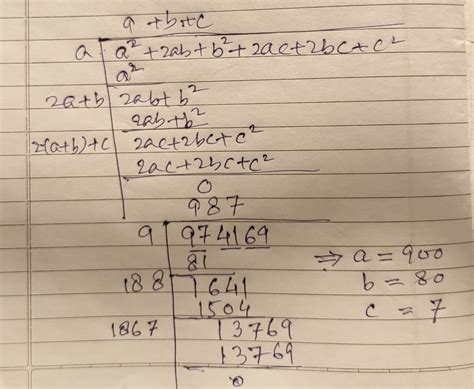 a+b+c
a | a²+2ab+b²+2ac+2bc+c²
a²
2a+b | 2ab+b²
2ab+b²
2(a+b)+c | 2ac+2bc+c²
2ac+2bc+c²
0
987
9 | 97 41 69
81
188 | 1641
1504
1867 | 13769
13769
0
⇒ a = 900
b = 80
c = 7